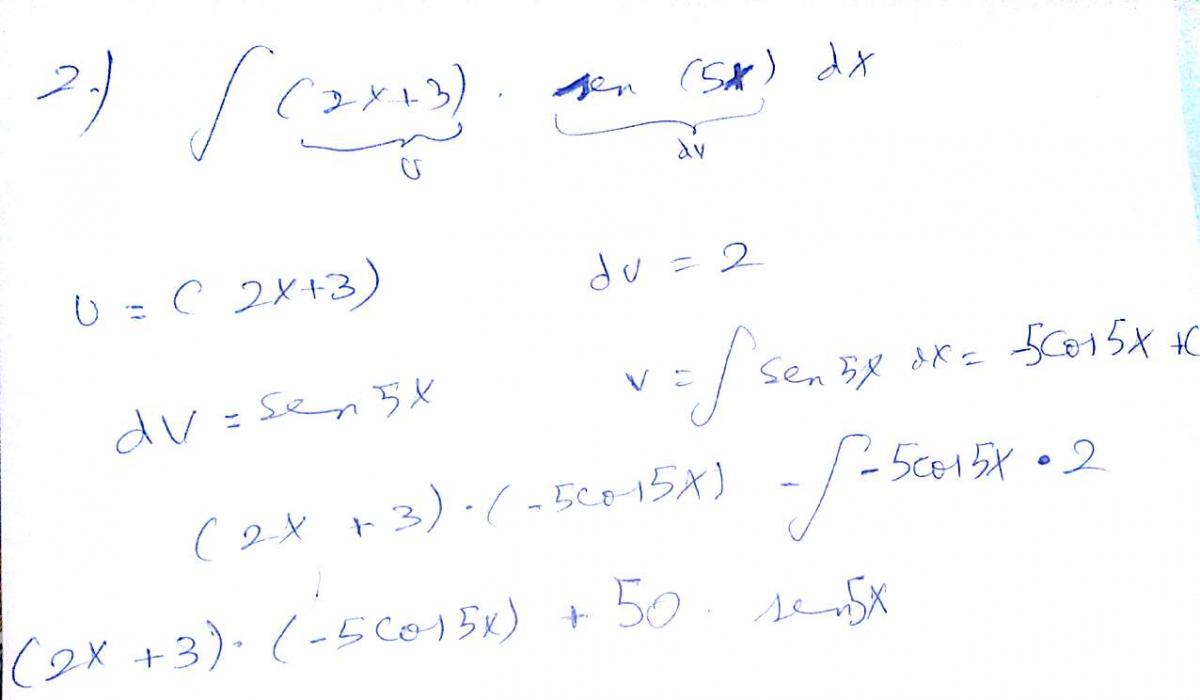 2.) ∫ (2x+3) . sen (5x) dx
U dv
U = ( 2x+3) du = 2
dV = sen 5x v = ∫ sen 5x dx = -5cos5x +C
(2x + 3) · (-5cos5x) - ∫ -5cos5x • 2
(2x +3) · (-5cos5x) + 50 . sen5x